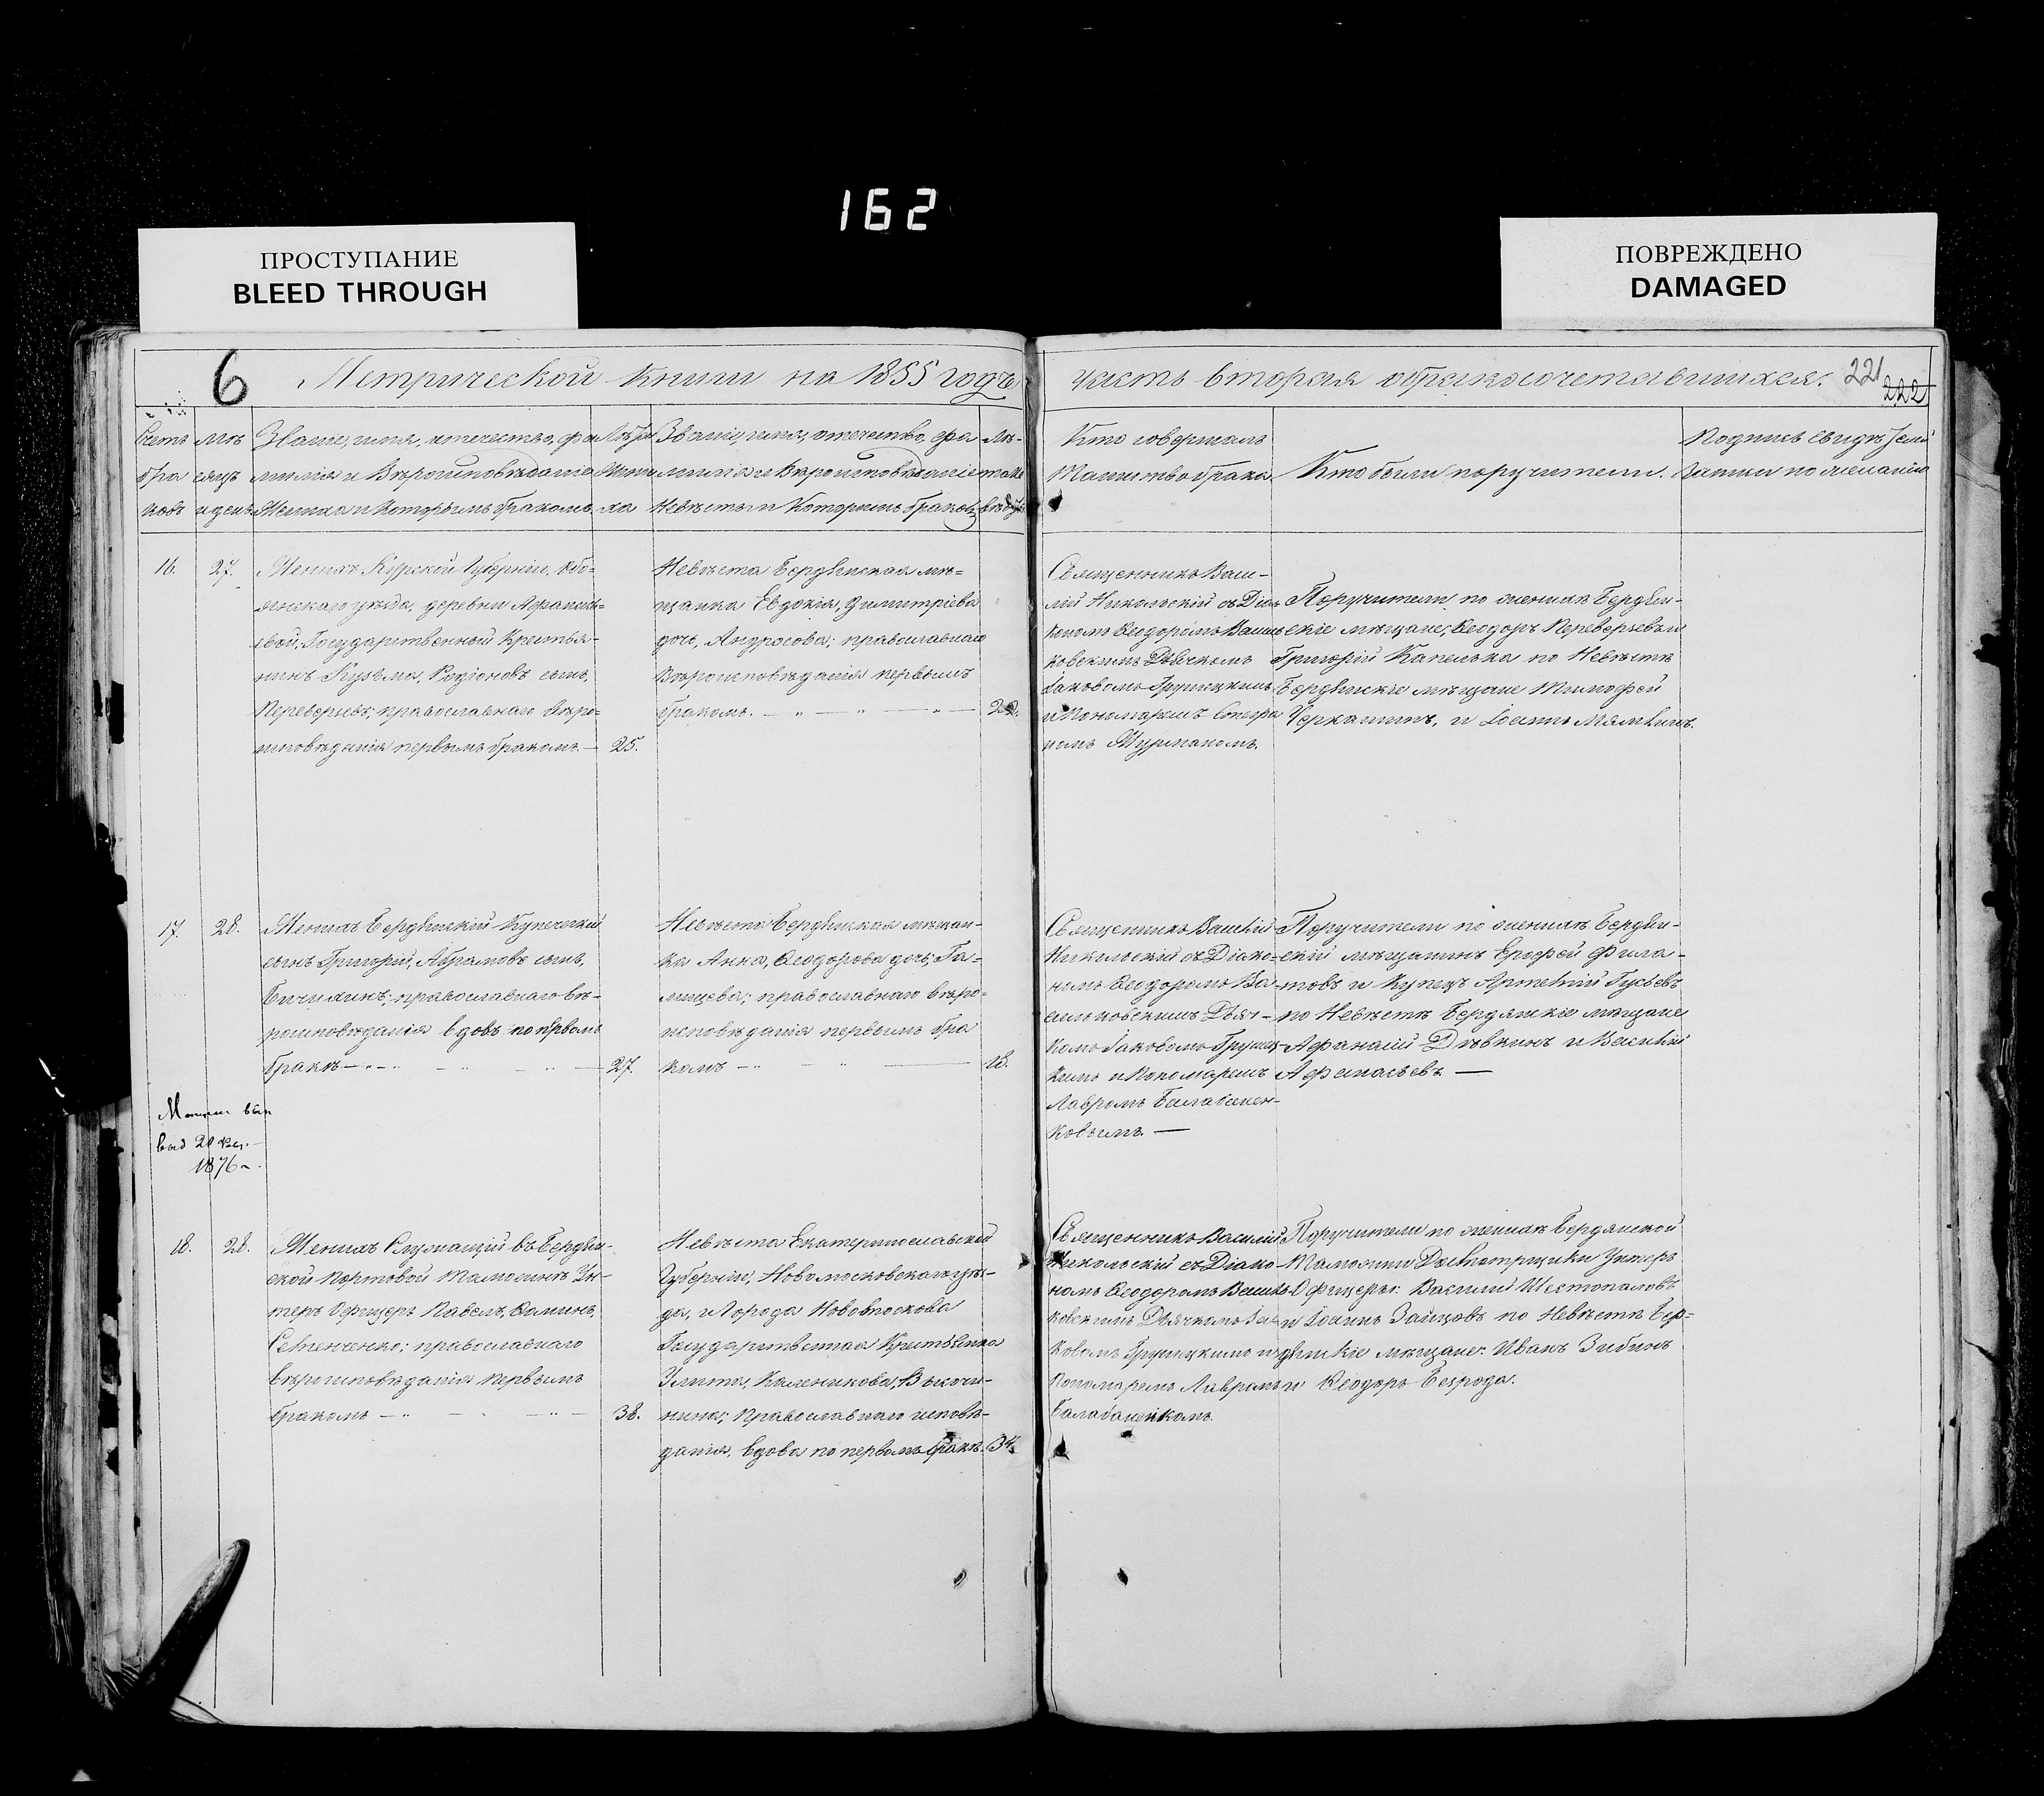 162
ПРОСТУПАНИЕ
BLEED THROUGH
ПОВРЕЖДЕНО
DAMAGED
6
Метрической книги на 1855 годъ
часть вторая о бракосочетавшихся.
221
222
Счетъ
бра
ковъ
Мѣ
сяцъ
и день
Званіе, имя, отечество, фа
милія и Вѣроисповѣданіе
Жениха и Которымъ бракомъ.
Лѣта
жени
ха
Званіе, имя, отечество, фа
милія и Вѣроисповѣданіе
Невѣсты и Которымъ бракомъ
Лѣ-
та не
вѣсты
Кто совершалъ
Таинство брака.
Кто были поручители.
Подпись свидѣтелей
записи по желанію
16.
27.
Женихъ Курской Губерніи, Обо-
янскаго уѣзда, деревни
Государственный Крестья-
нинъ Кузьма, Родіоновъ сынъ,
Переверзевъ; православнаго Вѣро-
исповѣданія первымъ бракомъ. —
25.
Невѣста Бердянская мѣ-
щанка Евдокія, Димитріева
дочь, Андросова; православнаго
Вѣроисповѣданія первымъ
бракомъ. —
Священникъ Васи-
лій Никольскій съ Діа-
кономъ Ѳеодоромъ Василь-
ковскимъ Дьячкомъ
Іаковомъ Грушецкимъ
и Пономаремъ Стефа
номъ
Поручители по женихѣ Бердян-
скіе мѣщане, Ѳеодоръ Переверзевъ и
Григорій Капелька по Невѣстѣ
Бердянскіе мѣщане Тимофей
и Іоаннъ
17.
28.
Женихъ Бердянскій Купеческій
сынъ Григорій, Абрамовъ сынъ,
православнаго вѣ-
роисповѣданія вдовъ по первомъ
бракѣ —
27.
Невѣста Бердянская мѣщан-
ка Анна, Ѳеодорова дочь,
православнаго вѣро-
исповѣданія первымъ бра
комъ —
18.
Священникъ Василій
Никольскій съ Діако-
номъ Ѳеодоромъ Ва-
сильковскимъ Дьяч-
комъ Іаковомъ Грушец-
кимъ и Пономаремъ
Лавромъ Балабанен-
ковымъ. —
Поручители по женихѣ Бердян-
скій мѣщанинъ Ерофей Фила-
товъ и Купецъ Арсеній Гусевъ
по Невѣстѣ Бердянскіе мѣщане
Афанасій Дѣвкинъ и Василій
Афанасьевъ —
1876
18.
28.
Женихъ Служащій въ Бердян-
ской Портовой Таможнѣ Ун-
теръ Офицеръ Павелъ, Ѳоминъ,
православнаго
вѣроисповѣданія первымъ
бракомъ —
38.
Невѣста Екатеринославской
Губерніи, Новомосковскаго уѣз-
да, и города Новомосковска
Государственная Крестьянка
православнаго исповѣ-
данія, вдова по первомъ бракѣ.
34.
Священникъ Василій
Никольскій съ Діако-
номъ Ѳеодоромъ Василь-
ковскимъ Дьячкомъ Іа-
ковомъ Грушецкимъ и
Пономаремъ Лавромъ
Балабаненкомъ.
Поручители по женихѣ Бердянской
Таможни Досмотрщики Унтеръ
Офицеры: Василій Шестопаловъ
и Іоаннъ Зайцовъ по Невѣстѣ Бер-
дянскіе мѣщане: Иванъ Зибинъ
и Ѳеодоръ Безрода.